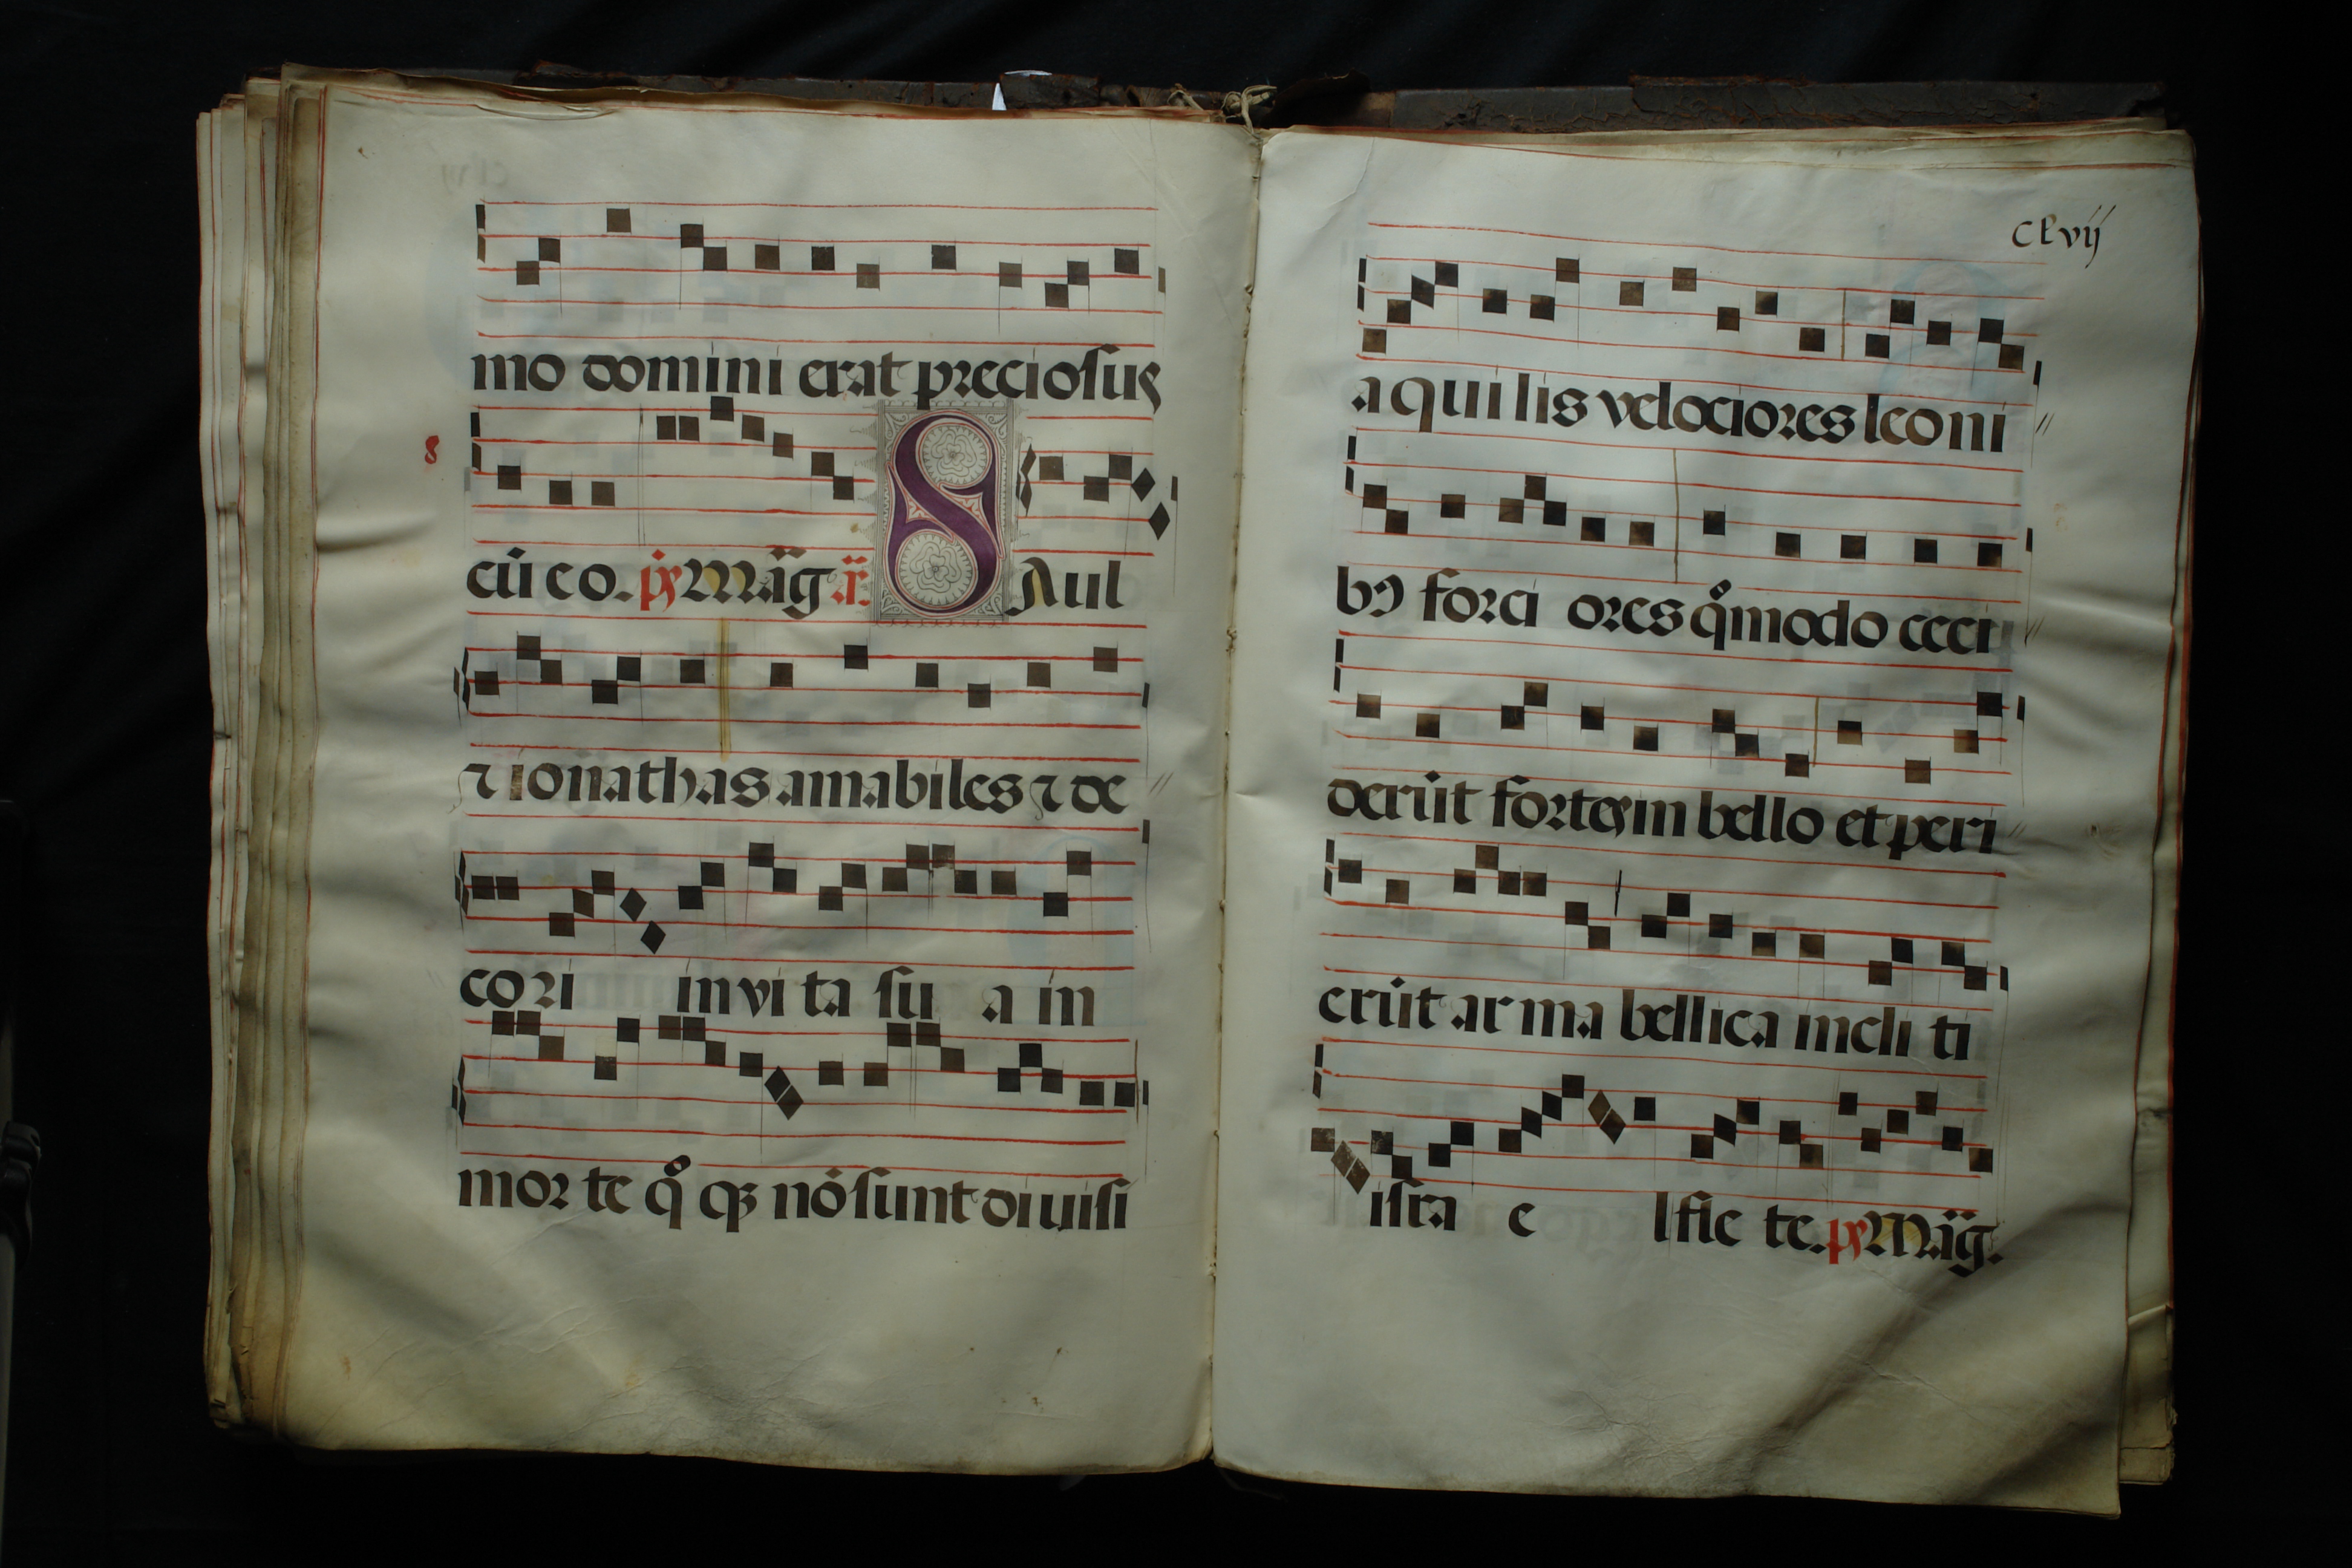 mo domini erat preciosus
8
cū co. ps Māg ā. SAul
⁊ ionathas amabiles ⁊ de
cori in vi ta su a in
mor te qͦ qꝫ nō sunt diuisi
clvij
aquilis velociores leoni
bꝰ forci ores qͦmodo ceci
derūt fortes in bello et peri
erūt ar ma bellica incli ti
isra e l fle te. ps Māg.